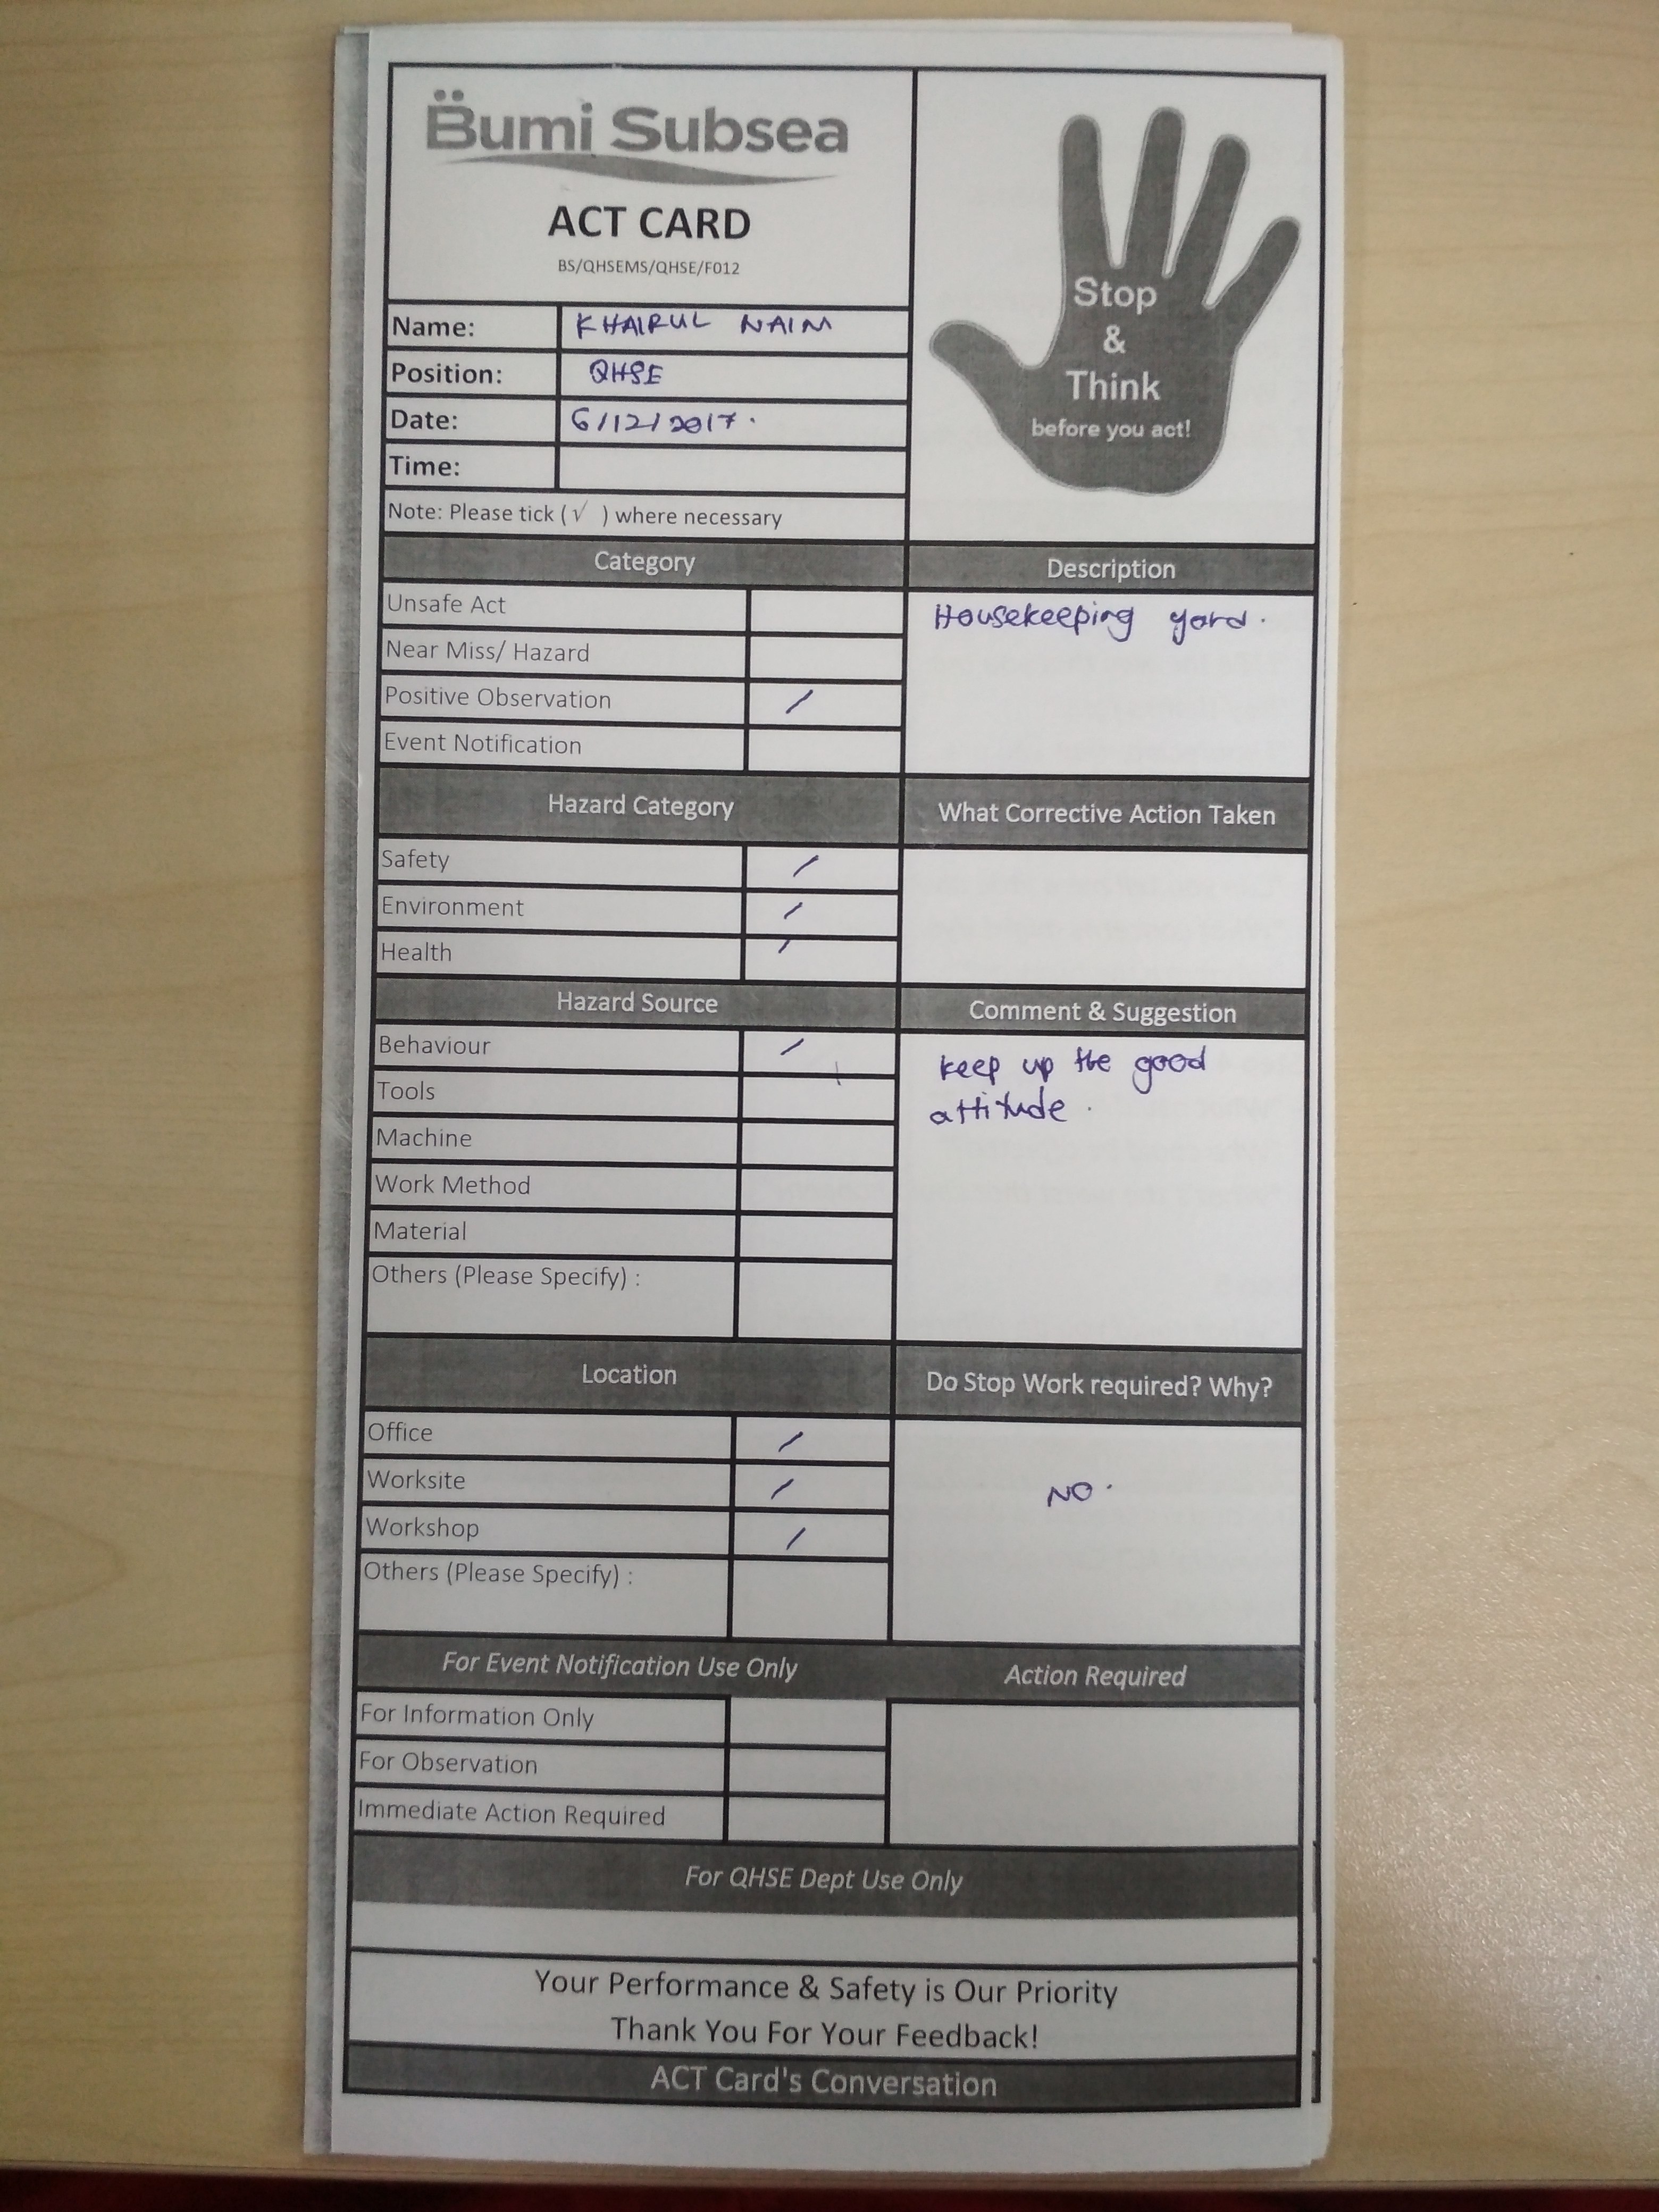 Bumi Subsea
ACT CARD
BS/QHSEMS/QHSE/F012
Stop
&
Think
before you act!
Name: KHAIRUL NAIM
Position: QHSE
Date: 6/12/2017.
Time:
Note: Please tick (√ ) where necessary
Category
Unsafe Act
Near Miss/ Hazard
Positive Observation /
Event Notification
Description
Housekeeping yard.
Hazard Category
Safety /
Environment /
Health /
What Corrective Action Taken
Hazard Source
Behaviour /
Tools
Machine
Work Method
Material
Others (Please Specify) :
Comment & Suggestion
keep up the good
attitude.
Location
Office /
Worksite /
Workshop /
Others (Please Specify) :
Do Stop Work required? Why?
NO.
For Event Notification Use Only
For Information Only
For Observation
Immediate Action Required
Action Required
For QHSE Dept Use Only
Your Performance & Safety is Our Priority
Thank You For Your Feedback!
ACT Card's Conversation